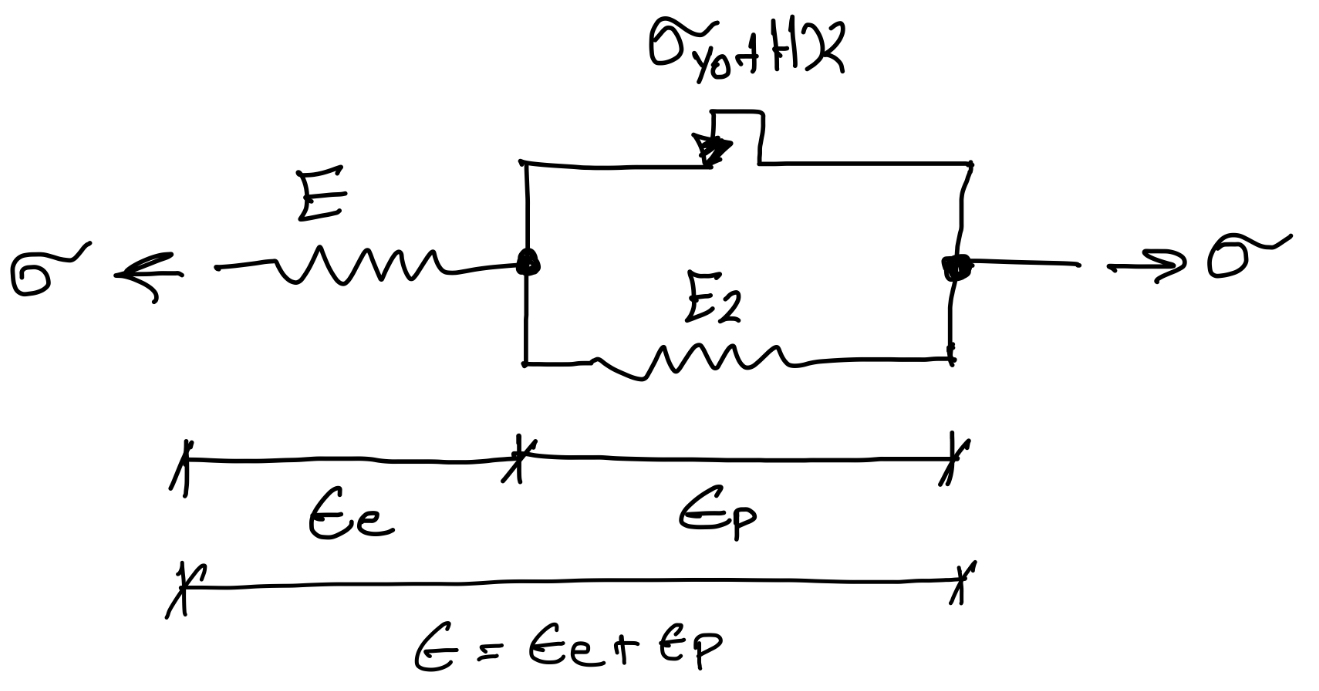 σy0+Hϰ
E
σ
σ
E2
ϵe
ϵp
ϵ = ϵe + ϵp